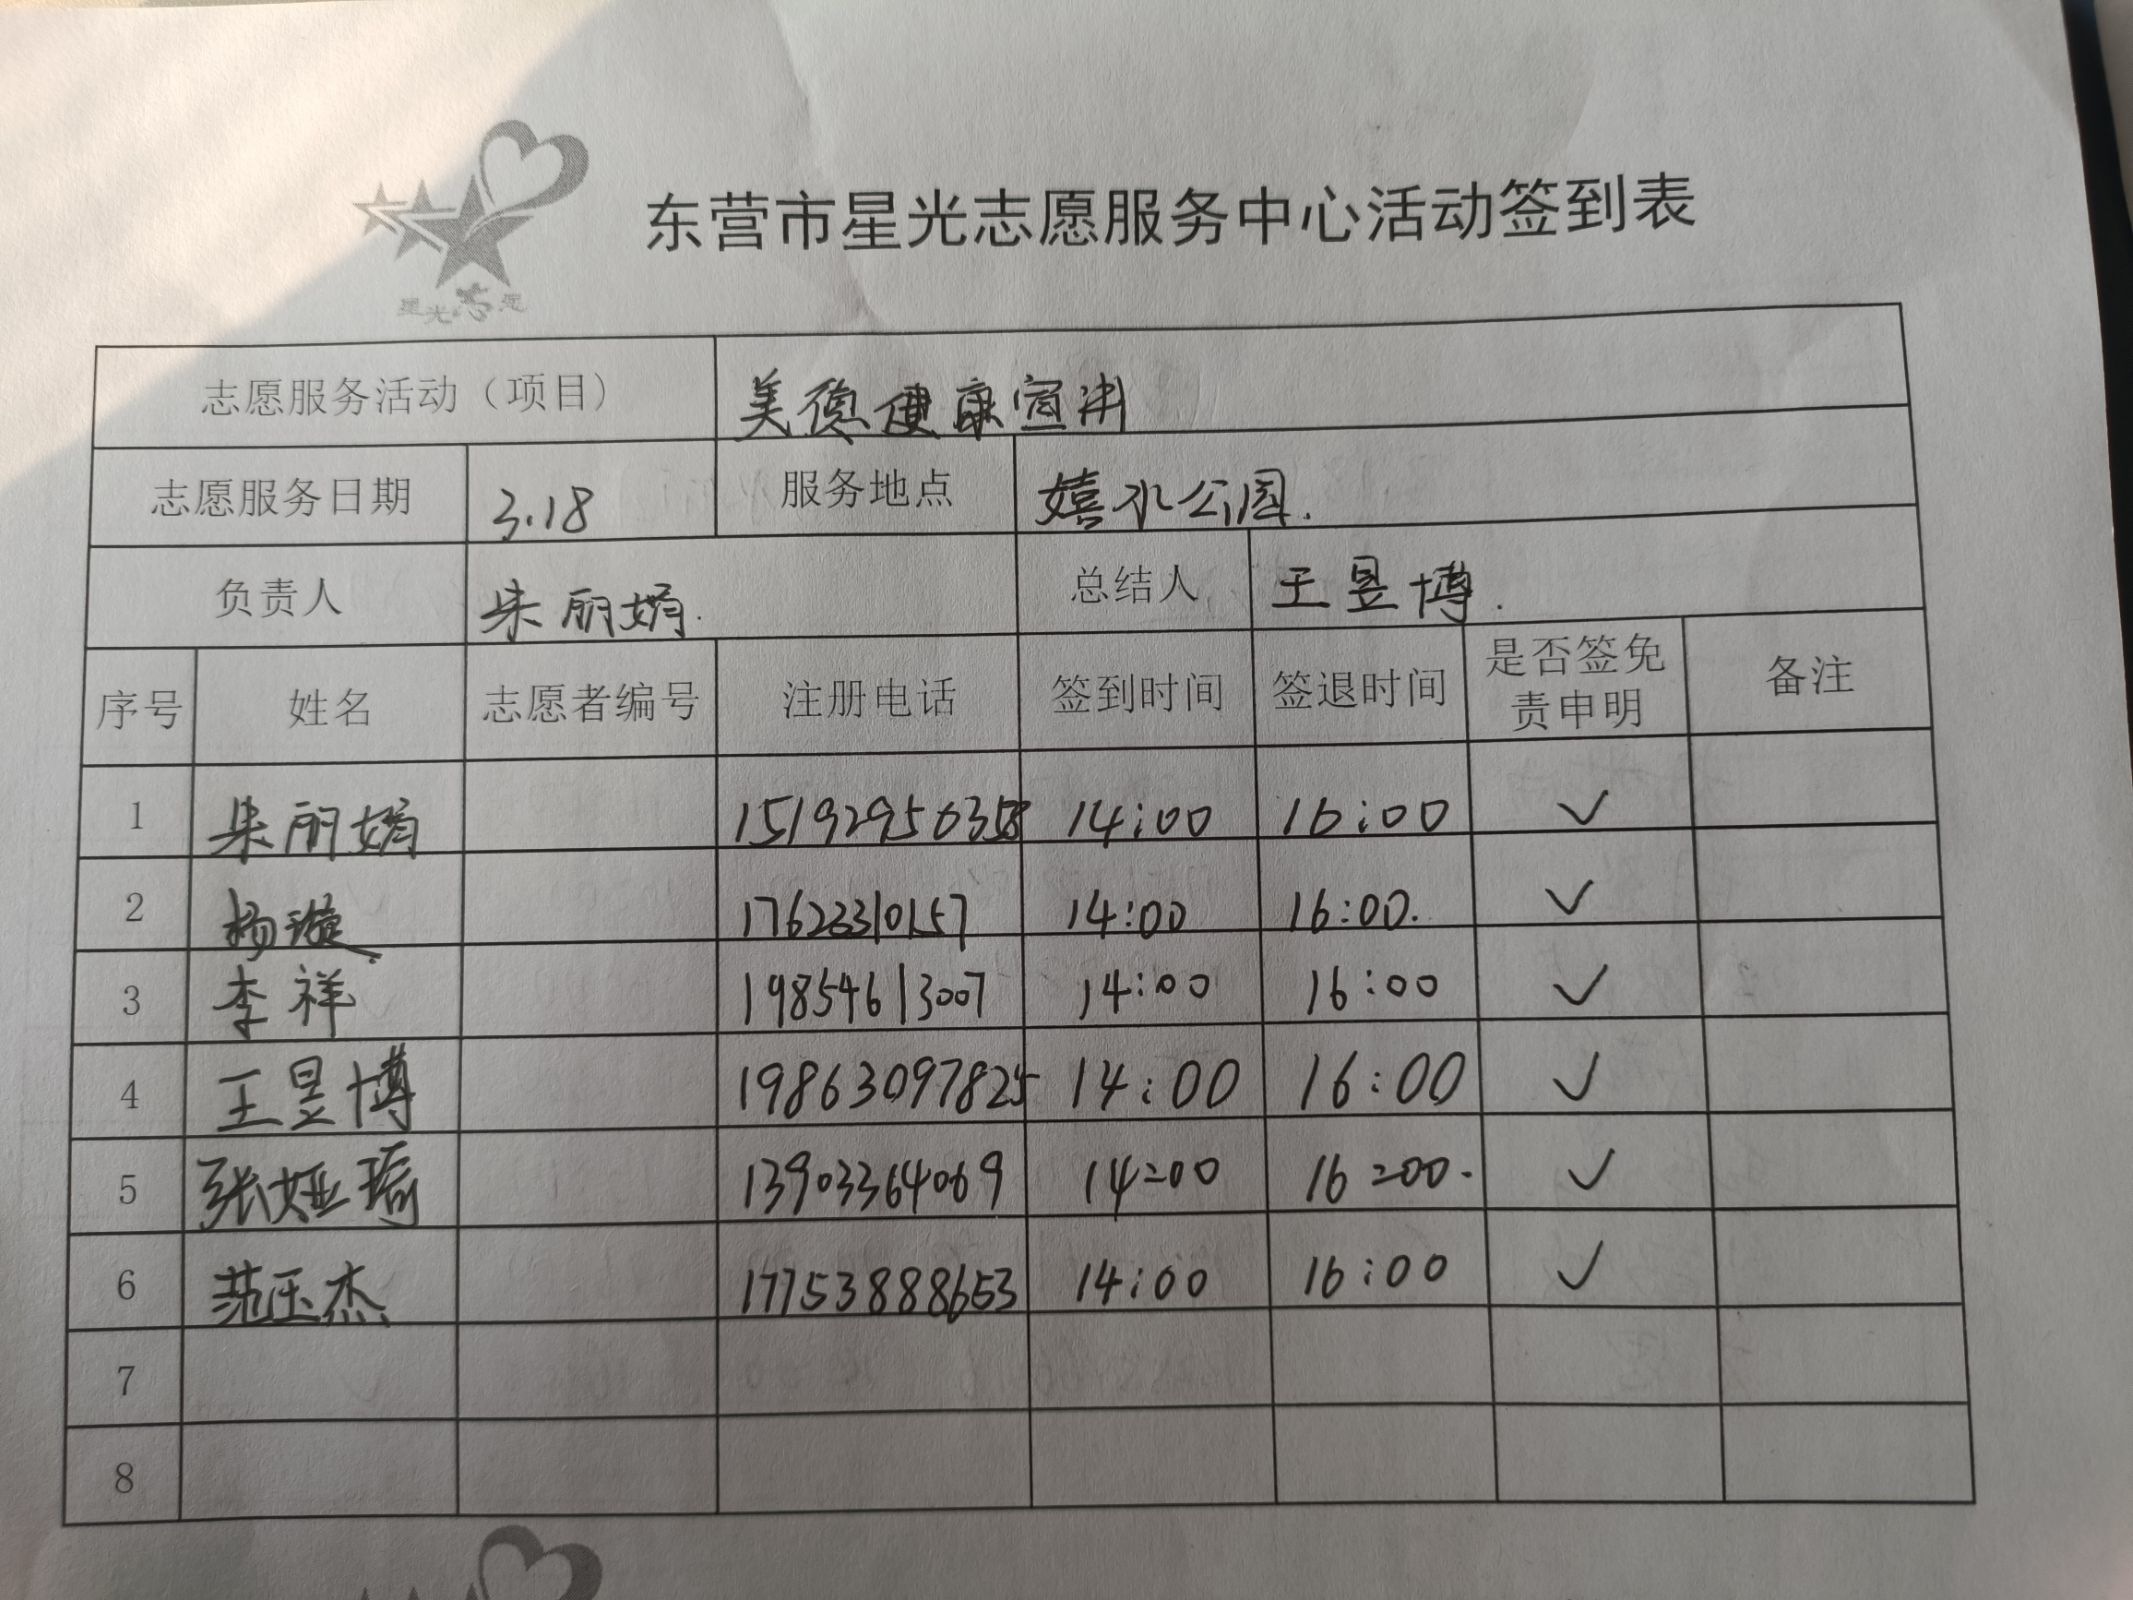 东营市星光志愿服务中心活动签到表
星光志愿
志愿服务活动（项目） 美德健康宣讲
志愿服务日期 3.18 服务地点 嬉水公园.
负责人 朱丽娟. 总结人 王昱博.
序号 姓名 志愿者编号 注册电话 签到时间 签退时间 是否签免责申明 备注
1 朱丽娟 14:00 16:00 ✓
2 杨璇. 17623310157 14:00 16:00. ✓
3 李祥 19854613007 14:00 16:00 ✓
4 王昱博 19863097825 14:00 16:00 ✓
5 张娅琦 13903364069 14:00 16:00. ✓
6 范玉杰 17753888653 14:00 16:00 ✓
7
8